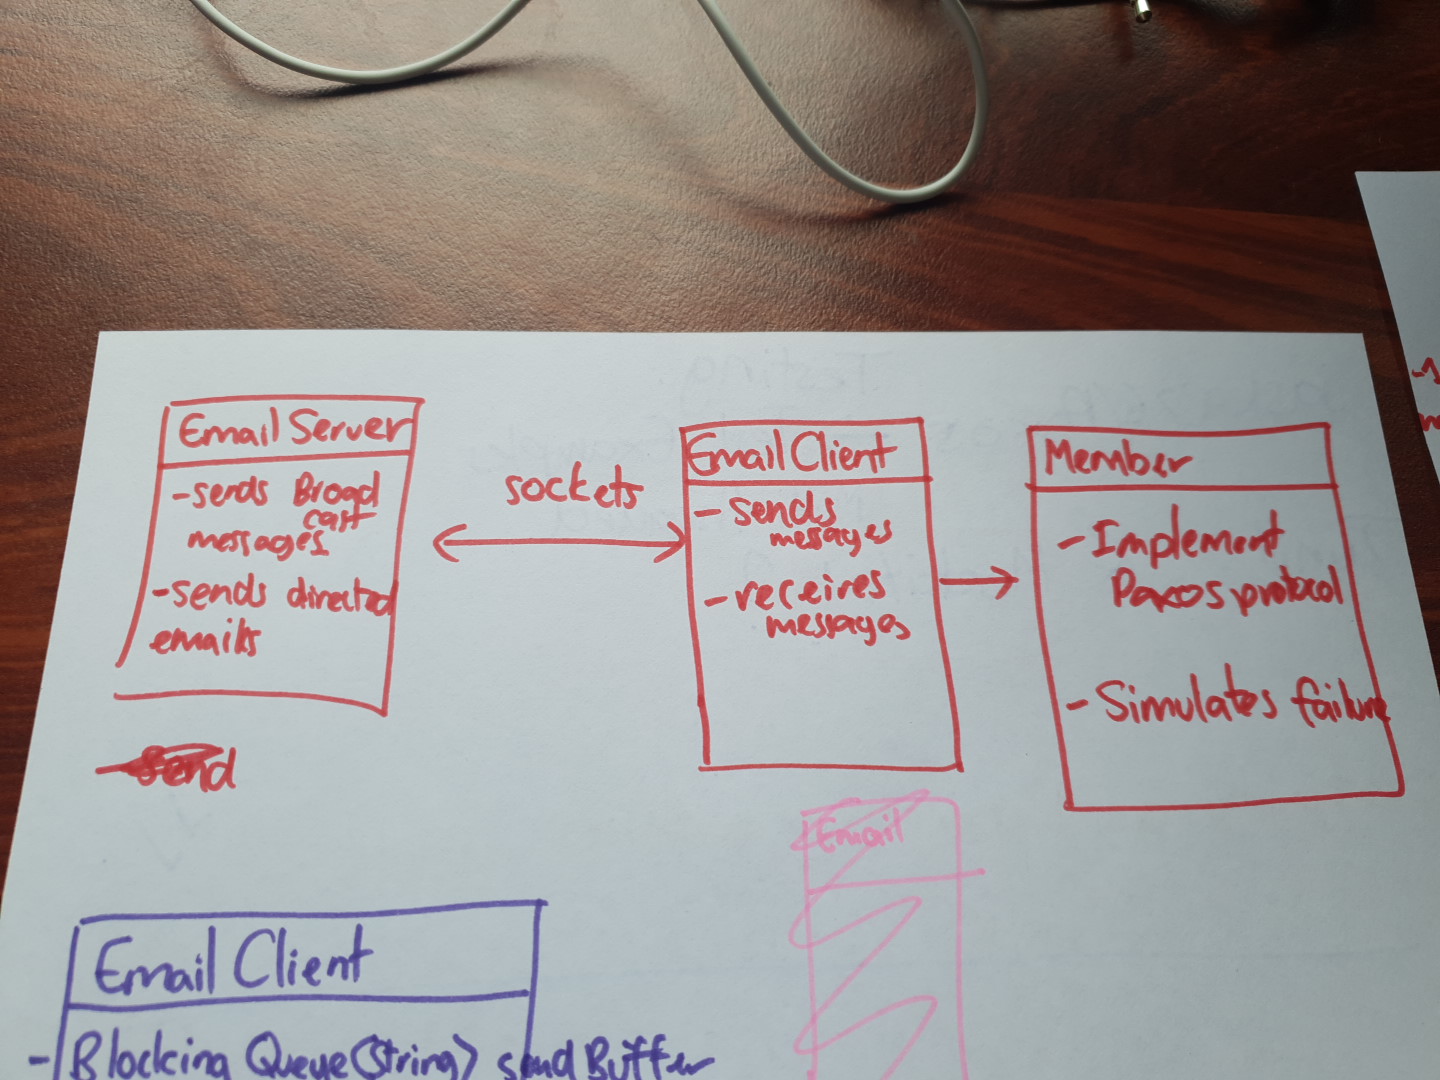 Email Server
-sends Broad
cast
messages
-sends directed
emails
send
sockets
Email Client
- sends
messages
- receires
messages
Member
- Implement
Paxos protocol
- Simulates failure
Email
Email Client
- Blocking Queue(String) sendBuffer
Testing